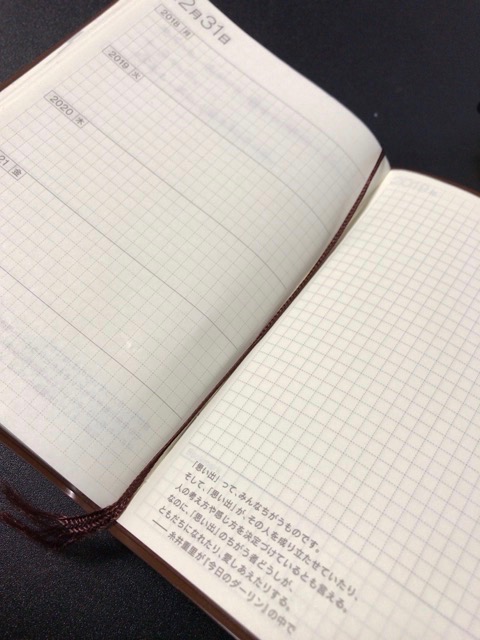 2月31日
2018 月
2019 火
2020 木
21 金
「思い出」って、みんなちがうものです。
そして、「思い出」が、その人を成り立たせていたり、
人の考え方や感じ方を決定づけているとも言える。
なのに、「思い出」のちがう者どうしが、
ともだちになれたり、愛しあえたりする。
── 糸井重里が『今日のダーリン』の中で